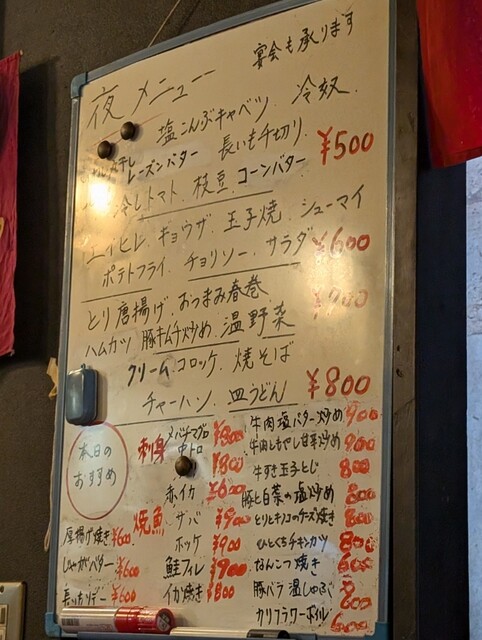 宴会も承ります
夜メニュー
塩こんぶキャベツ、冷奴、
レーズンバター 長いも千切り ¥500
冷しトマト、枝豆、コーンバター
エイヒレ、ギョウザ、玉子焼、シューマイ
ポテトフライ、チョリソー、サラダ ¥600
とり唐揚げ、おつまみ春巻
ハムカツ 豚キムチ炒め、温野菜
クリームコロッケ、焼そば
チャーハン、皿うどん ¥800
本日の
おすすめ
刺身 メバチマグロ
中トロ ¥800
赤イカ
焼魚 サバ
ホッケ ¥900
鮭フィレ ¥900
イカ焼き ¥800
厚揚げ焼き ¥600
じゃがバター ¥600
¥600
牛肉塩バター炒め 900
牛肉もやし甘辛炒め 900
牛すき玉子とじ 800
豚と白菜の塩炒め 800
とりとキノコのチーズ焼き 800
ひとくちチキンカツ 800
なんこつ焼き 600
豚バラ温しゃぶ 800
カリフラワーボイル 600